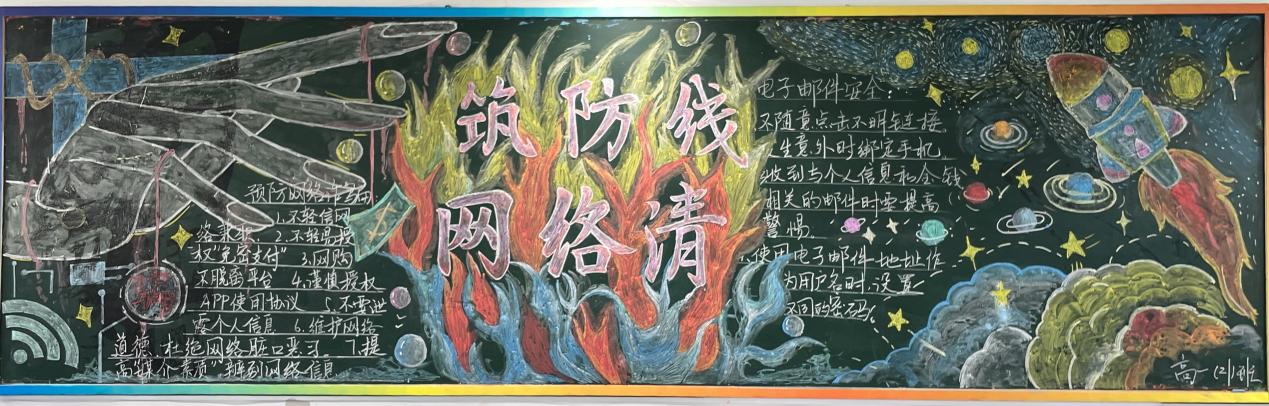 筑防线
网络清
预防网络诈骗
1.不轻信网
络 2.不轻易授
权"免密支付" 3.网购
不脱离平台 4.谨慎授权
APP使用协议 5.不要泄
露个人信息 6.维护网络
道德、杜绝网络脏口恶习 7.提
高媒介素质
网络信息
电子邮件安全:
不随意点击不明链接
生意外时绑定手机
收到与个人信息和金钱
相关的邮件时要提高
警惕
使用电子邮件地址作
为用户名时,设置
不同的密码
高一(2)班